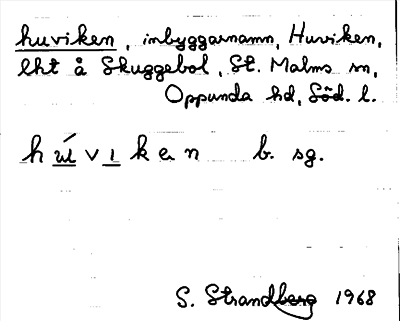 huviken, inbyggarnamn, Huviken,
lht å Skuggebol, St. Malms sn,
Oppunda hd, Söd. l.
húvıken b. sg.
S. Strandberg 1968